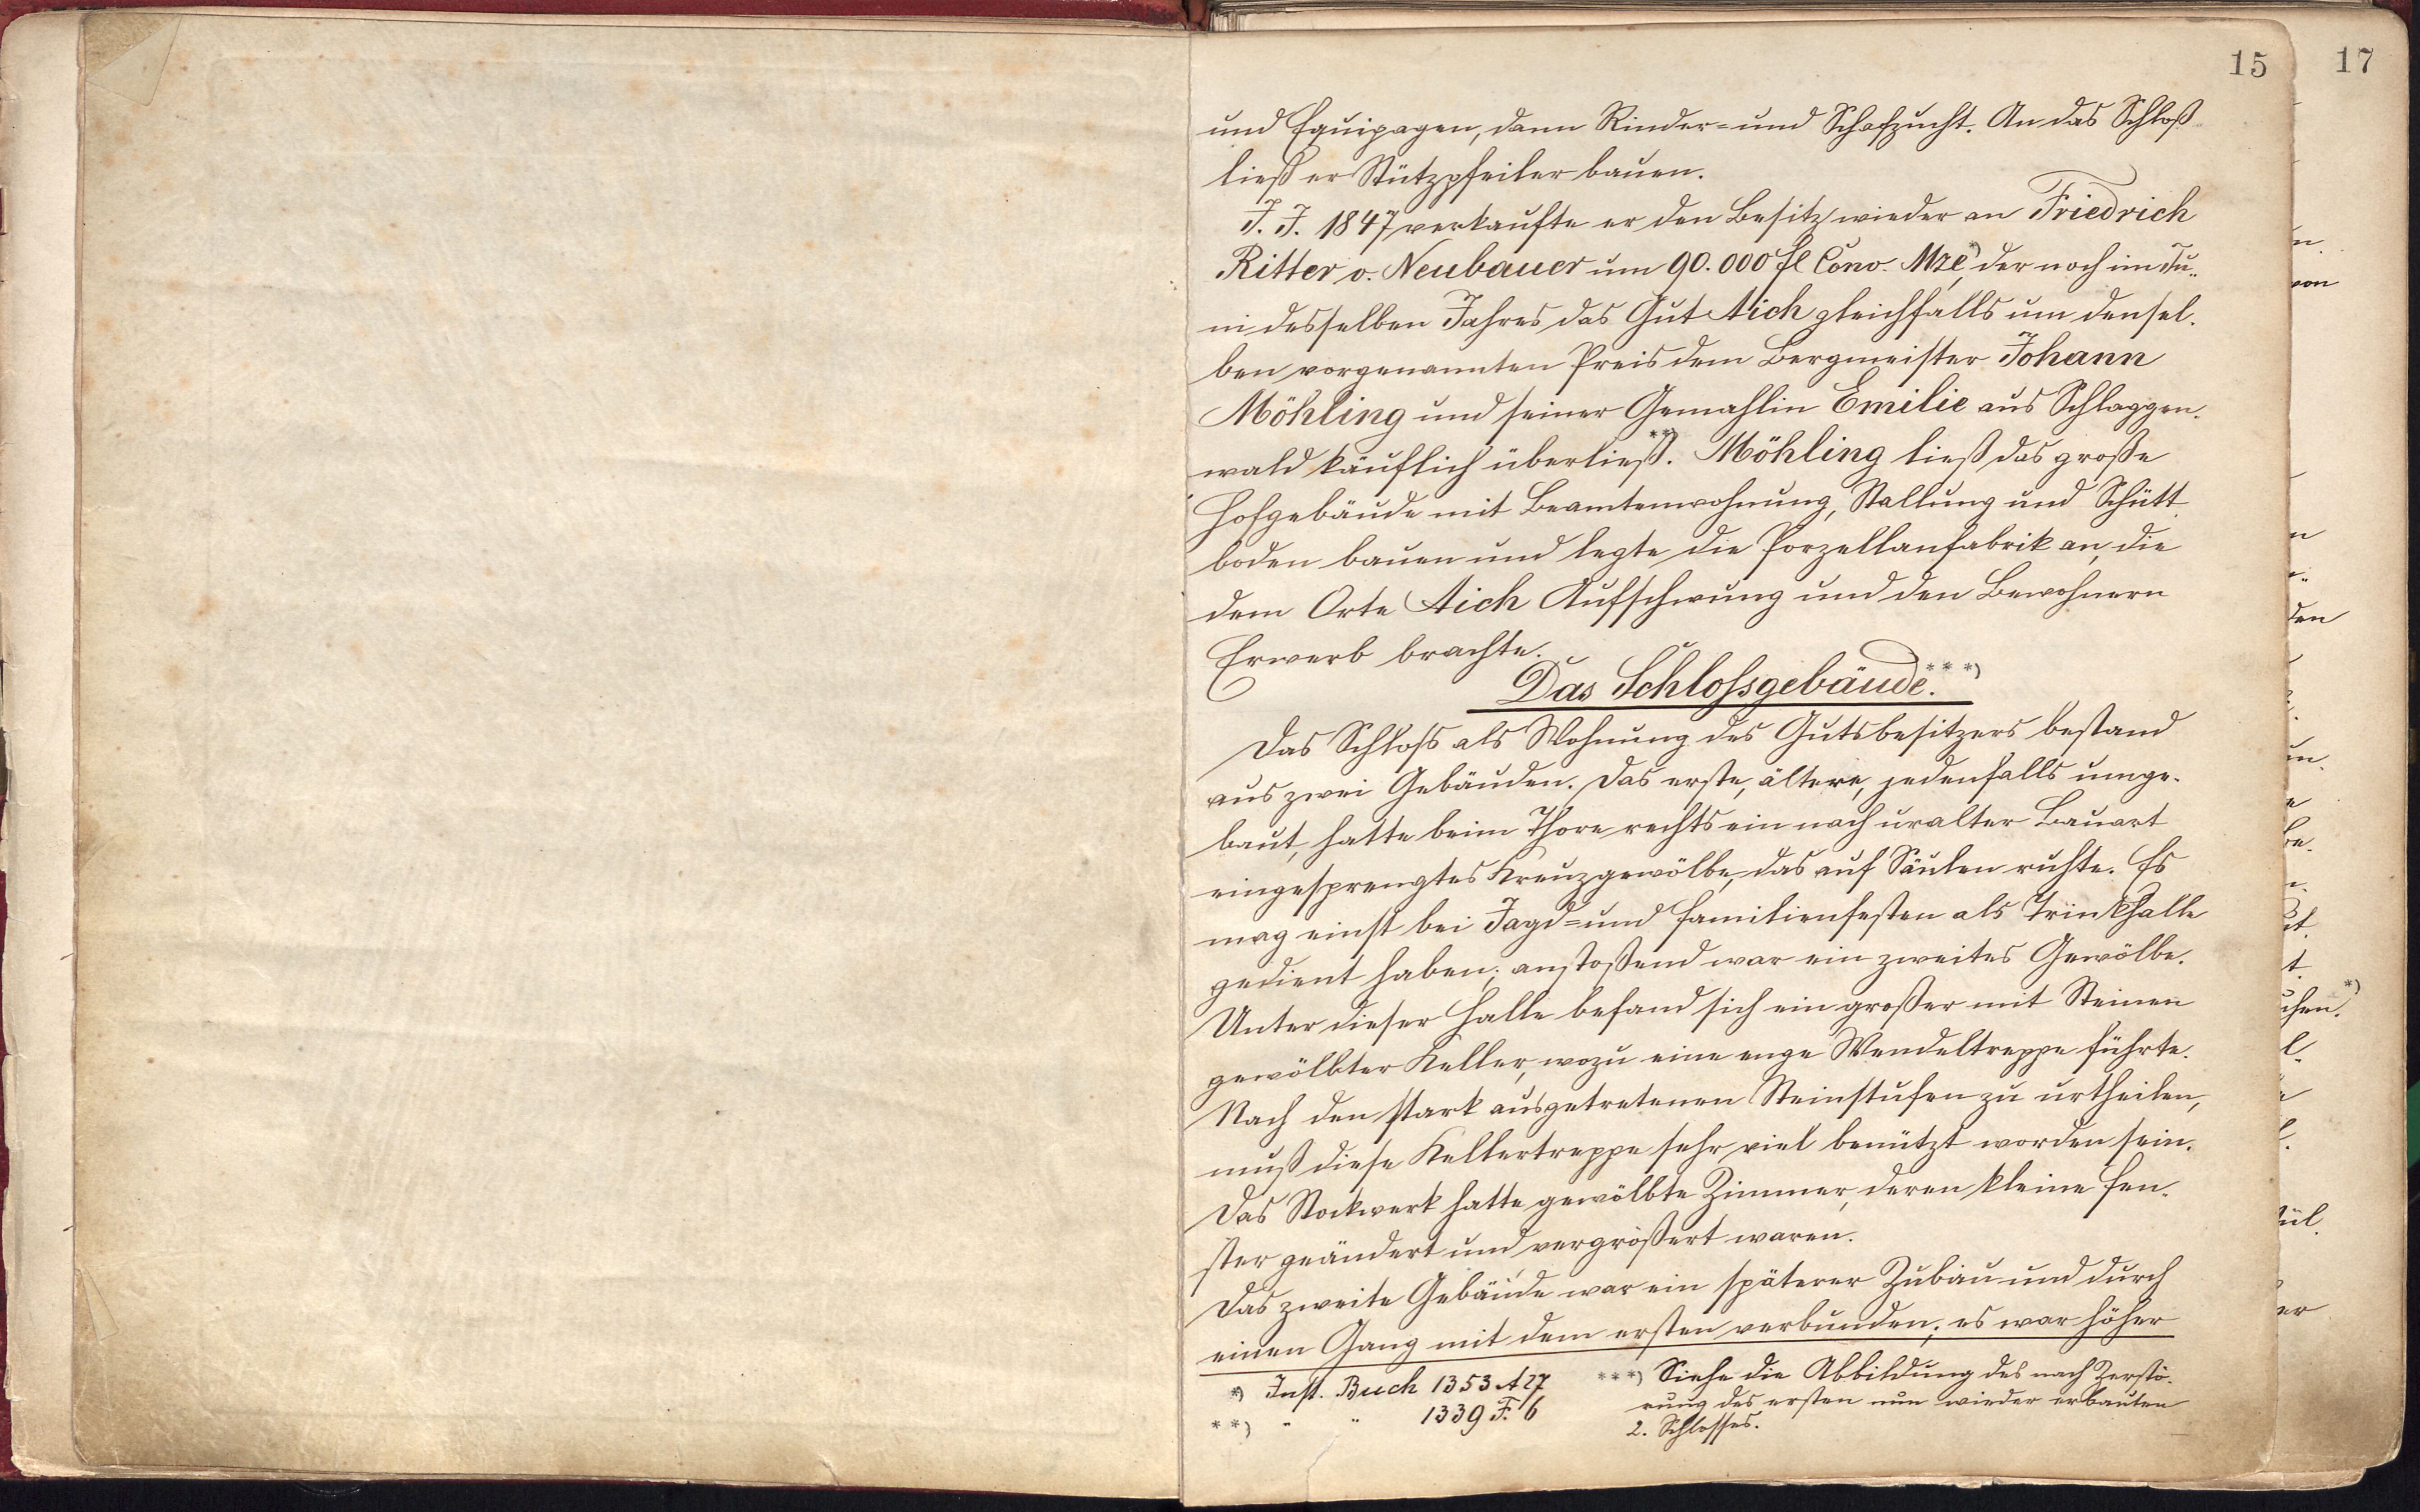 15
17
und Equipagen, dann Rinder- und Schafzucht. An das Schloß
ließ er Stützpfeiler bauen.
I. J. 1847 verkaufte er den Besitz wieder an Friedrich
Ritter v. Neubauer um 90.000 fl Conv. Mze,*) der noch im Ju-
ni desselben Jahres das Gut Aich gleichfalls um densel-
ben vorgenannten Preis dem Bergmeister Johann
Möhling und seiner Gemahlin Emilie aus Schlaggen-
wald käuflich überließ.**) Möhling ließ das große
Hofgebäude mit Beamtenwohnung, Stallung und Schütt-
boden bauen und legte die Porzellanfabrik an, die
dem Orte Aich Aufschwung und den Bewohnern
Erwerb brachte.
Das Schlossgebäude.***)
Das Schloss als Wohnung des Gutsbesitzers bestand
aus zwei Gebäuden. Das erste, ältere, jedenfalls umge-
baut, hatte beim Thore rechts ein nach uralter Bauart
eingesprengtes Kreuzgewölbe, das auf Säulen ruhte. Es
mag einst bei Jagd- und Familienfesten als Trinkhalle
gedient haben; anstoßend war ein zweites Gewölbe.
Unter dieser Halle befand sich ein großer mit Steinen
gewölbter Keller, wozu eine enge Wendeltreppe führte.
Nach den stark ausgetretenen Steinstufen zu urtheilen,
muß diese Kellertreppe sehr viel benützt worden sein.
Das Stockwerk hatte gewölbte Zimmer, deren kleine Fen-
ster geändert und vergrößert waren.
Das zweite Gebäude war ein späterer Zubau und durch
einen Gang mit dem ersten verbunden; es war höher
*) Inst. Buch 1353 A 27
**) " " 1339 F. 6
***) Siehe die Abbildung des nach Zerstö-
rung des ersten nun wieder erbauten
2. Schlosses.